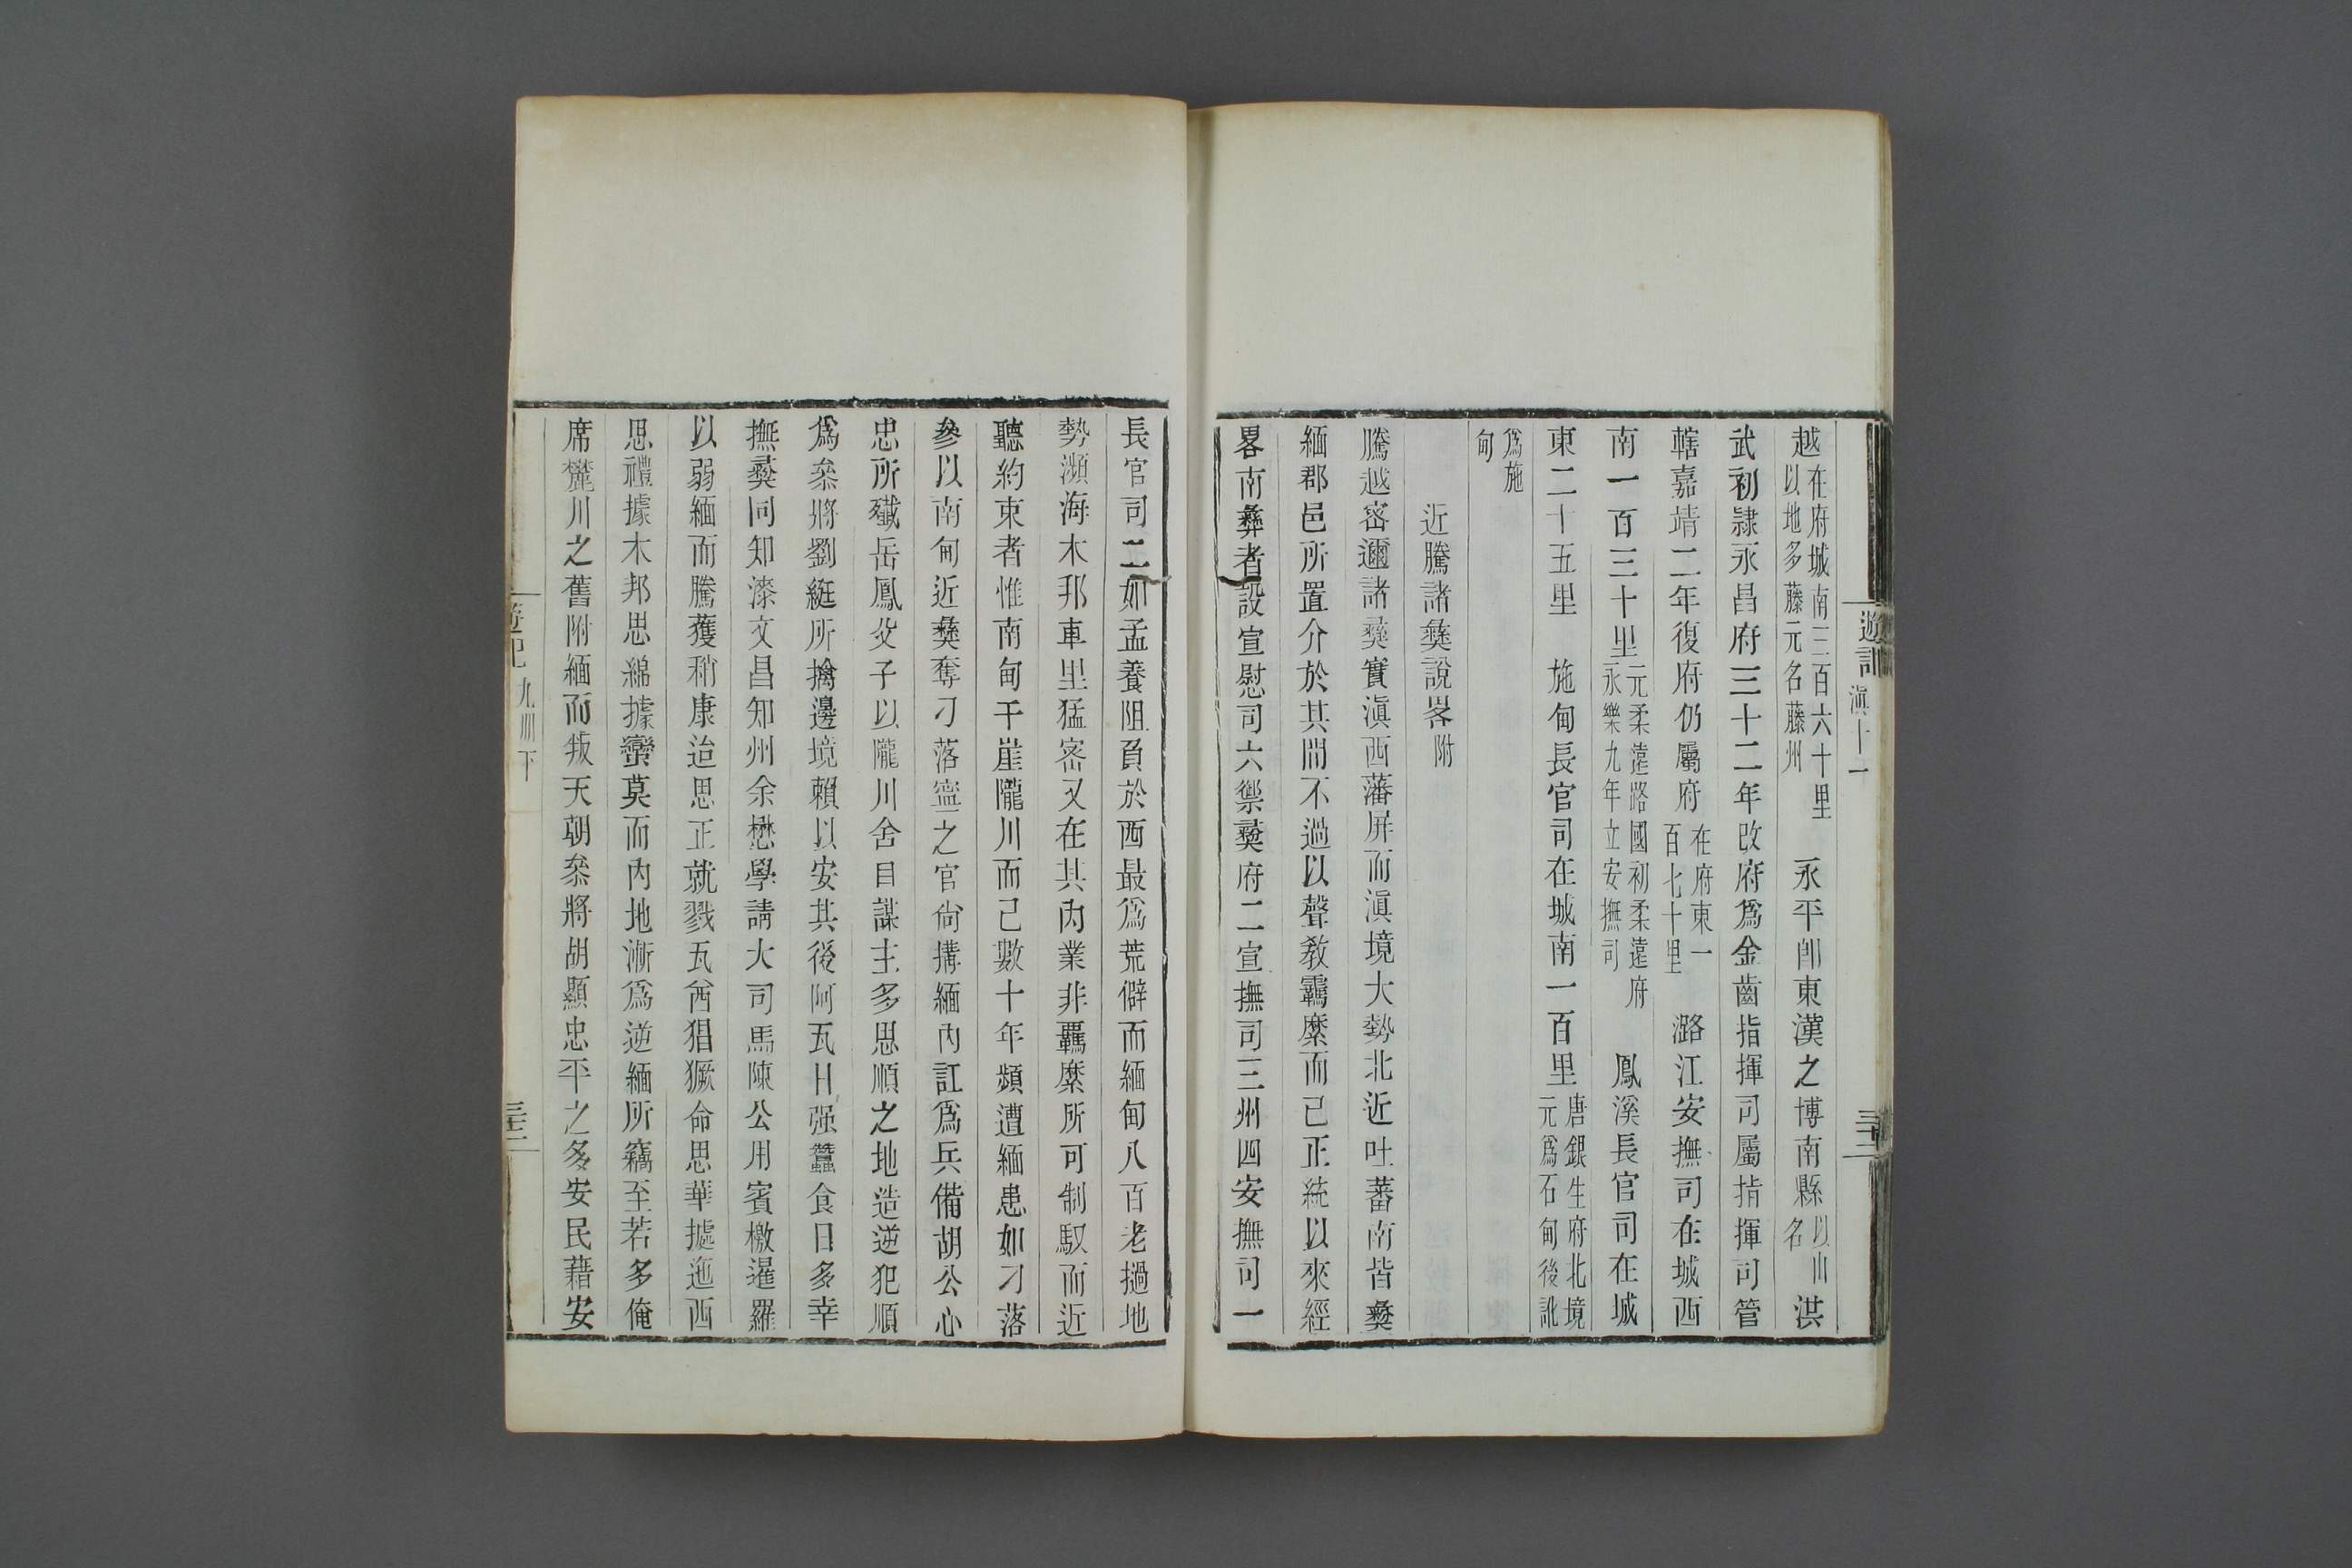 越在府城南三百六十里以地多藤元名藤州　永平卽東漢之博南縣以山名洪
武初隷永昌府三十二年改府爲金齒指揮司屬指揮司管
轄嘉靖二年復府仍屬府在府東一百七十里　潞江安撫司在城西
南一百三十里元柔遠路國初柔遠府永樂九年立安撫司　鳳溪長官司在城
東二十五里　施甸長官司在城南一百里唐銀生府北境元爲石甸後訛
爲施甸
近騰諸彝說畧附
騰越密邇諸彝實滇西藩屏而滇境大勢北近吐蕃南皆彝
緬郡邑所置介於其間不過以聲敎羈縻而已正統以來經
畧南彝者設宣慰司六禦彝府二宣撫司三州四安撫司一
遊記 滇十一 三十二
長官司二如孟養阻負於西最爲荒僻而緬甸八百老撾地
勢瀕海木邦車里猛密又在其內業非羈縻所可制馭而近
聽約束者惟南甸干崖隴川而已數十年頻遭緬患如刁落
參以南甸近彝奪刁落寧之官尙搆緬內訌爲兵備胡公心
忠所殲岳鳳父子以隴川舍目謀主多思順之地造逆犯順
爲叅將劉綎所擒邊境賴以安其後阿瓦日强蠶食日多幸
撫彝同知漆文昌知州余懋學請大司馬陳公用賓檄暹羅
以弱緬而騰獲稍康迨思正就戮瓦酋猖獗命思華據迤西
思禮據木邦思綿據蠻莫而內地漸爲逆緬所竊至若多俺
席麓川之舊附緬而叛天朝叅將胡顯忠平之多安民藉安
遊記 九册下 三十二